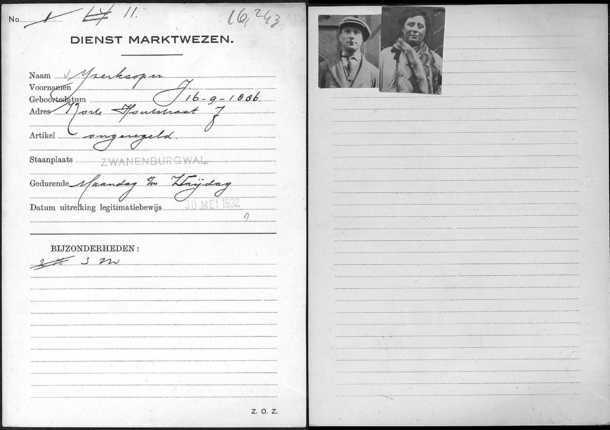 No. 11.
16,243
DIENST MARKTWEZEN.
Naam v. IJserkooper
Voornamen J
Geboortedatum 16-9-1886.
Adres Korte Houtstraat 7
Artikel ongeregeld.
Staanplaats ZWANENBURGWAL
Gedurende Maandag t/m Vrijdag
Datum uitreiking legitimatiebewijs 30 MEI 1932
BIJZONDERHEDEN:
3 M
Z. O. Z.